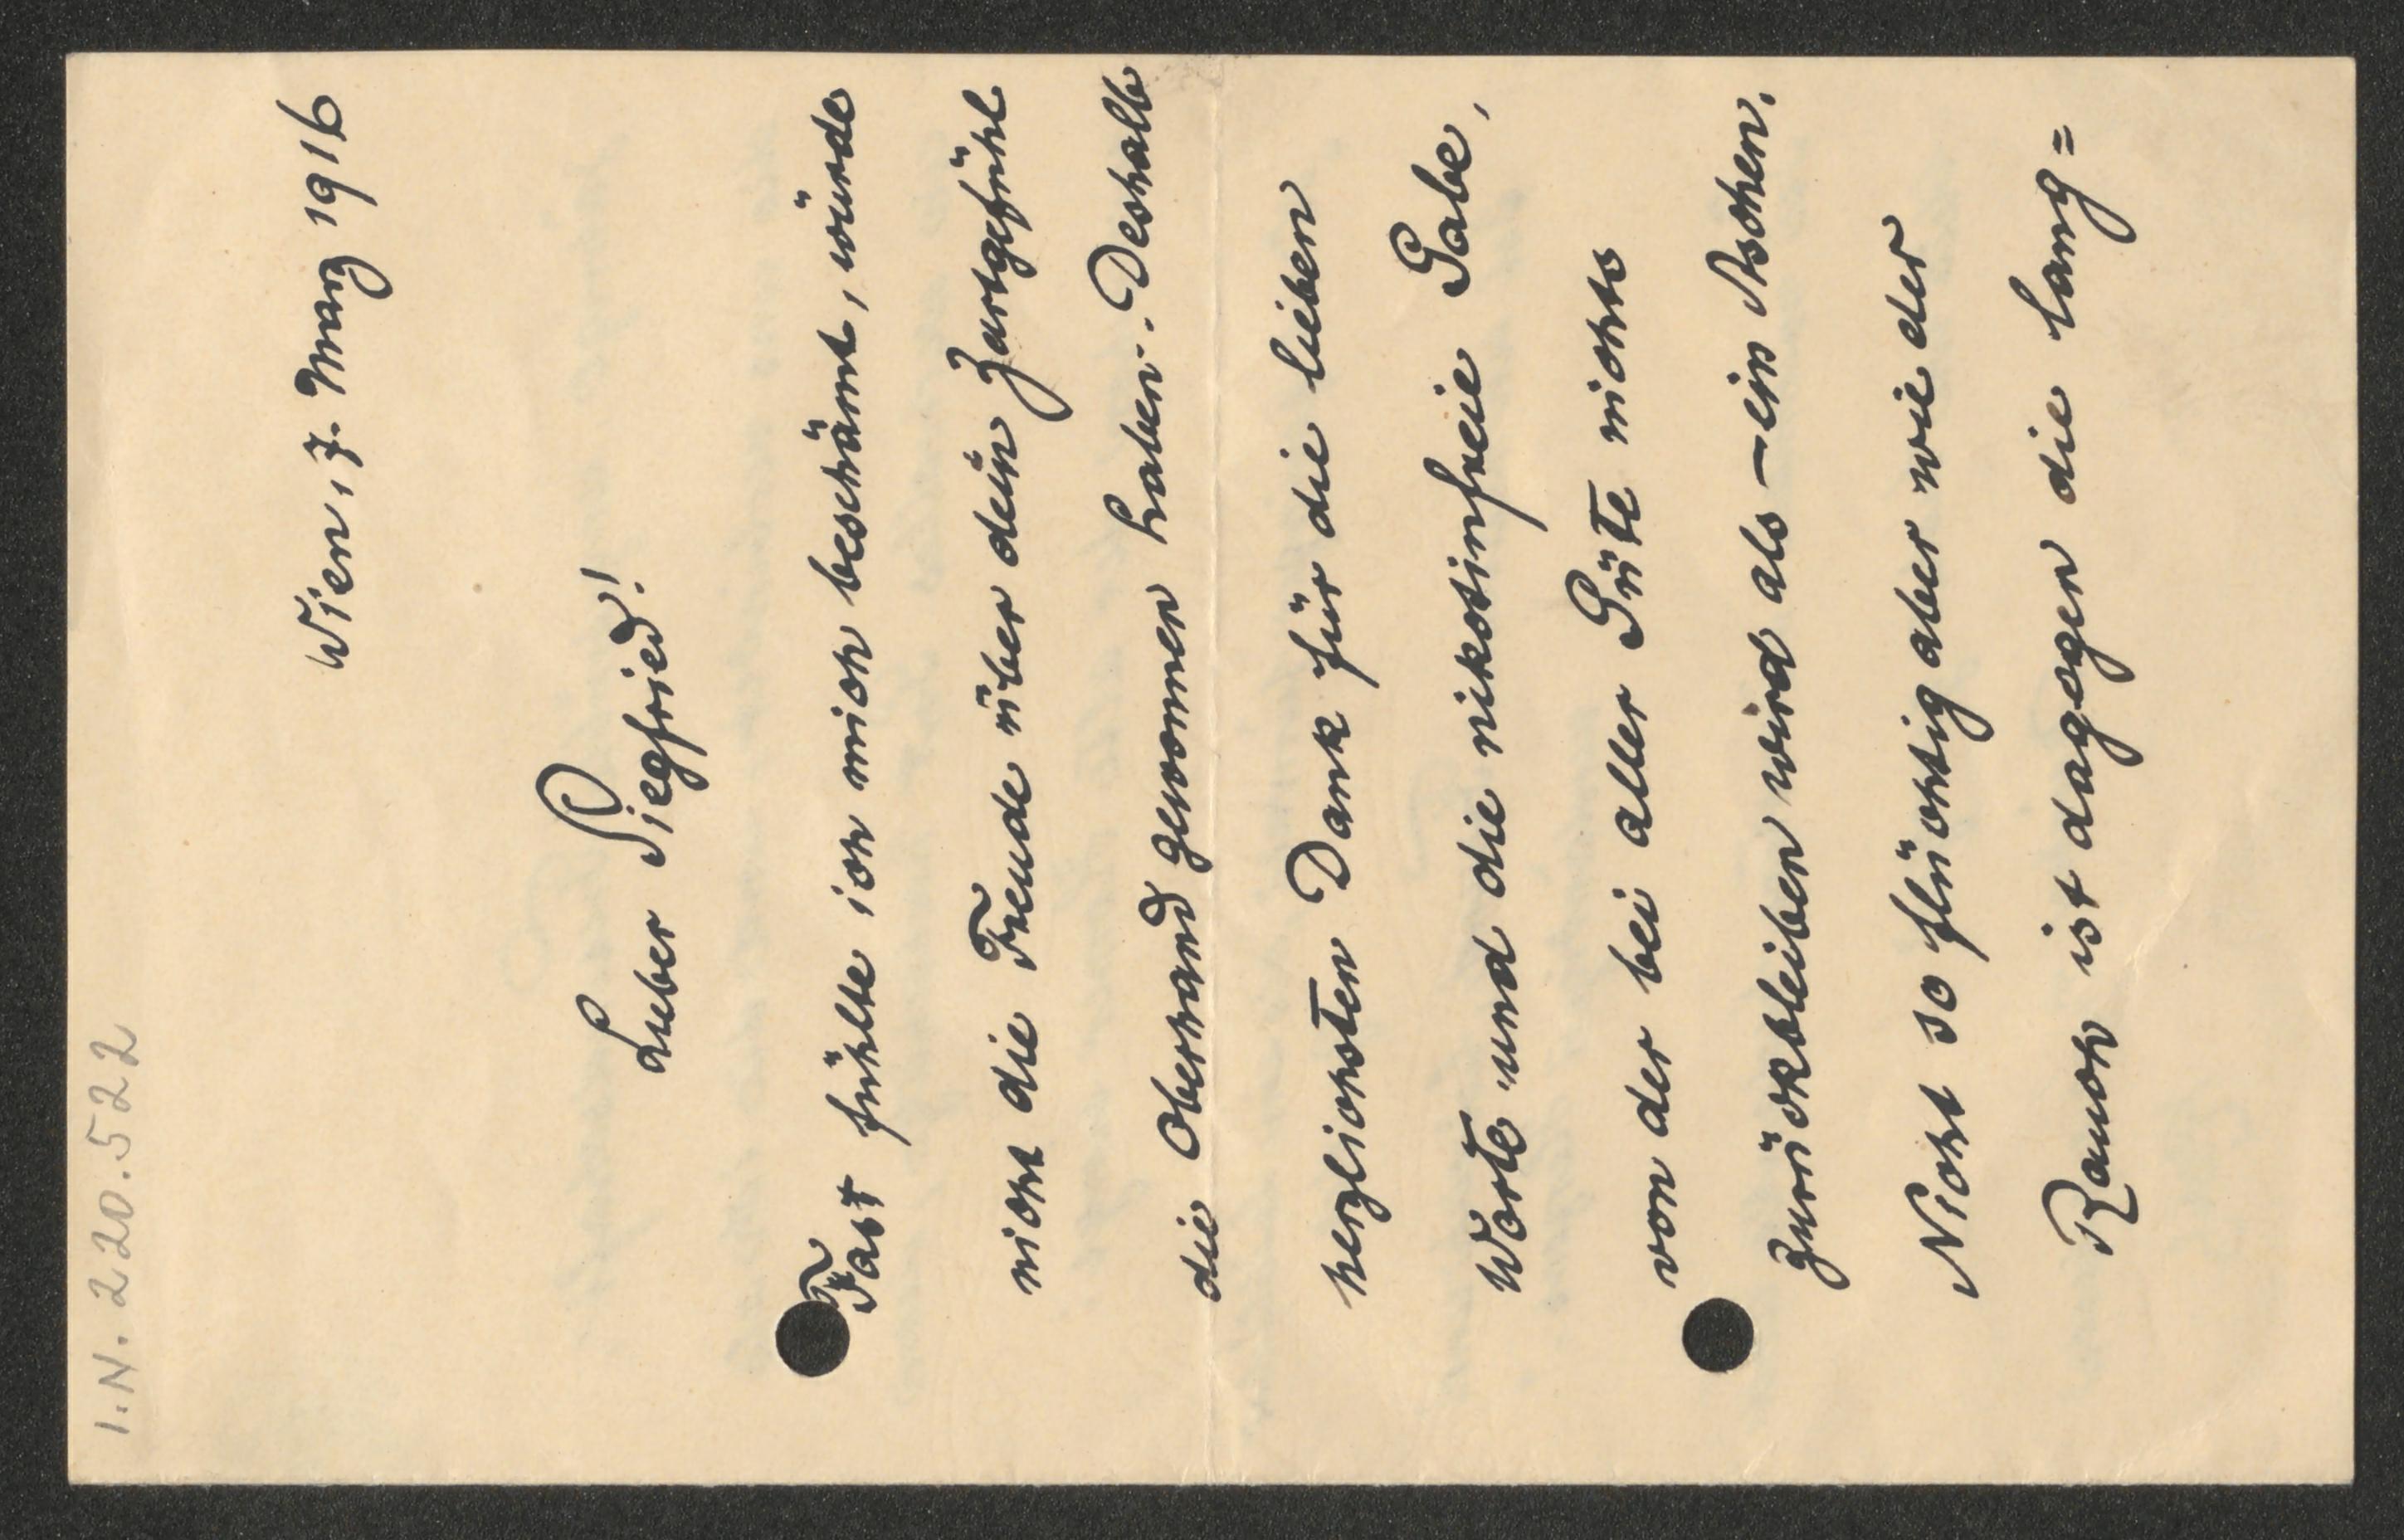 I.N. 220.522
Wien, 7. März 1916
Lieber Siegfried!
Fast fühlte ich mich beschämt, würde
nicht die Freude über dein Zartgefühl
die Oberhand genommen haben. Deshalb
herzlichsten Dank für die lieben
Worte und die nikotinfreie Gabe,
von der bei aller Güte nichts
zurückbleiben wird als – ein Aschen.
Nicht so flüchtig aber wie der
Rauch ist dagegen die lang=